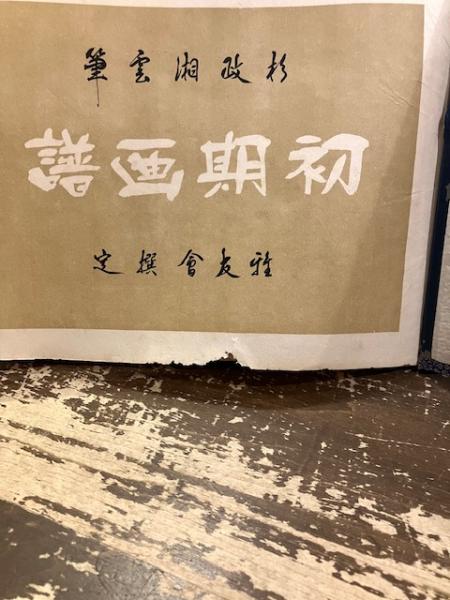 杉政湘雲筆
初期画譜
雅友會撰定